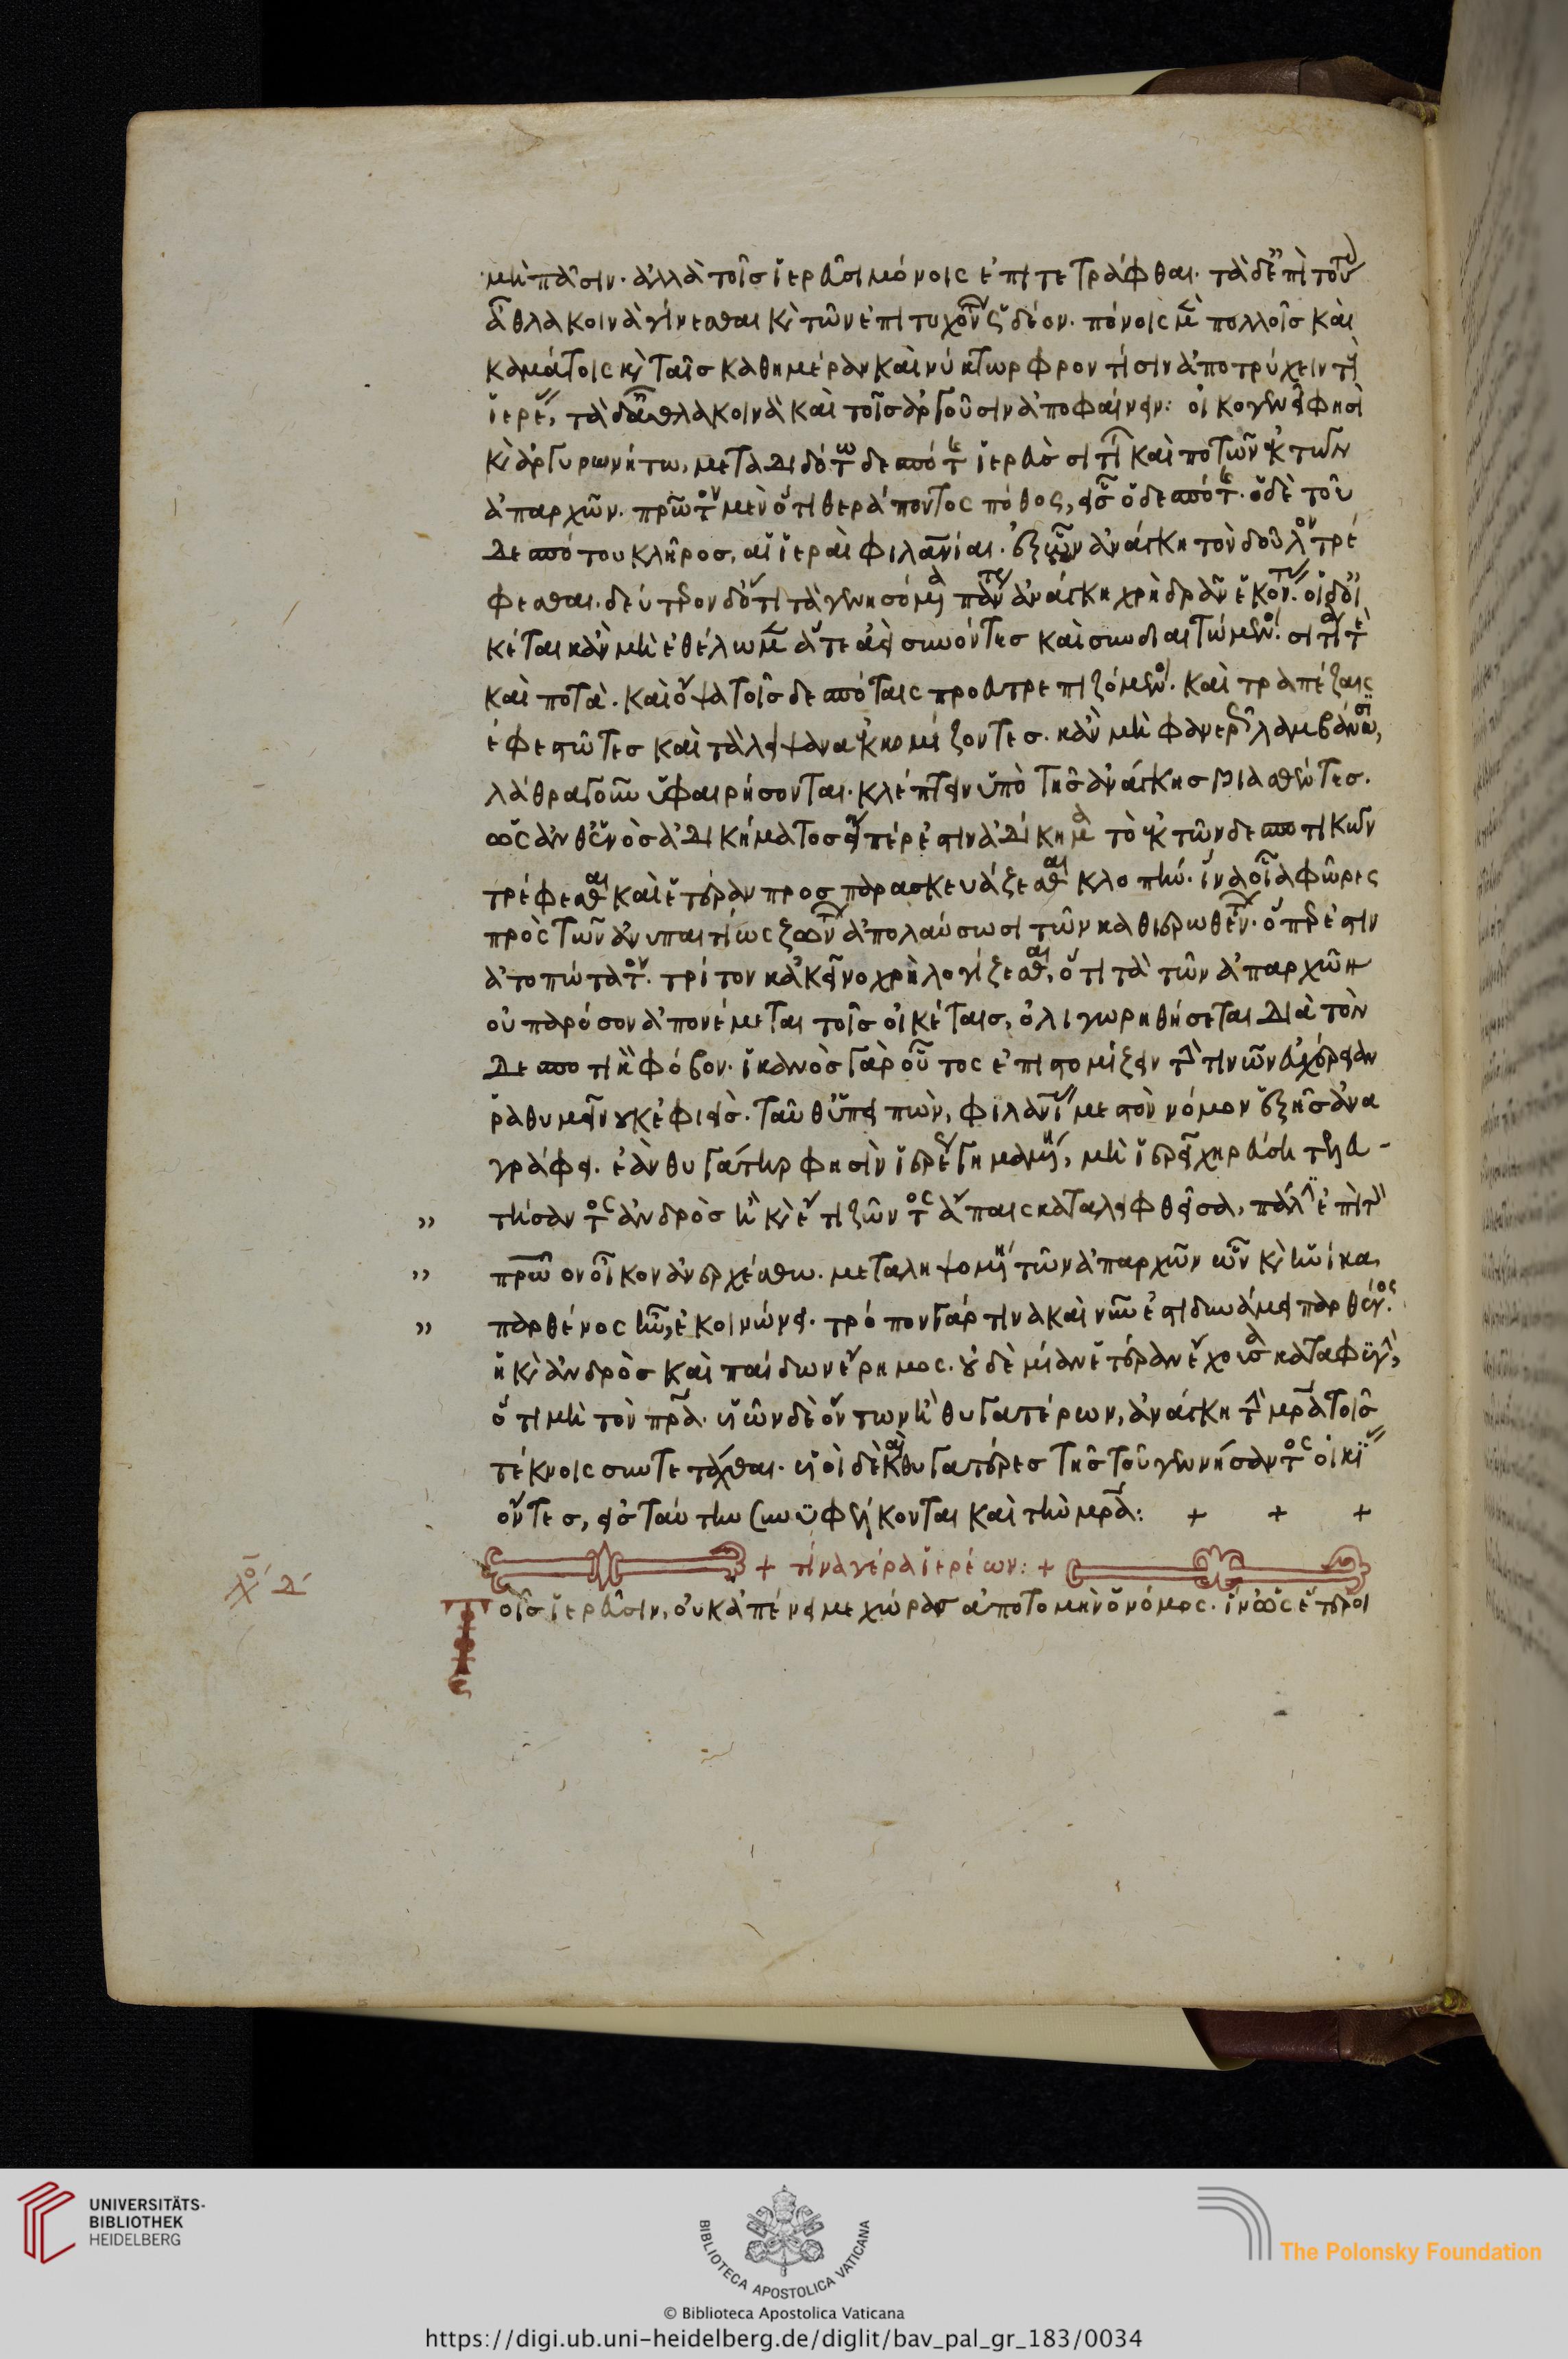 μὴ πᾶσιν· ἀλλὰ τοῖς ἱερεῦσι μόνοις ἐπιτετράφθαι· τὰ δ' ἐπὶ τού
ἆθλα κοινὰ γίνεσθαι κ(αὶ) τῶν ἐπιτυχόντ(ων) οὐ δέον· πόνοις μ(ὲν) πολλοῖς καὶ
καμάτοις κ(αὶ) ταῖς καθημέραν καὶ νύκτωρ φροντίσιν ἀποτρύχειν τ(οὺς)
ἱερέ(ας), τὰ δ' ἆθλα κοινὰ καὶ τοῖς ἀργοῦσιν ἀποφαίνειν: οἰκογενεῖ φησὶ
κ(αὶ) ἀργυρωνήτω, μεταδιδότω δεσπότ(ης) ἱερεὺς σιτί(ων) καὶ ποτῶν ἐκ τῶν
ἀπαρχῶν. πρῶτον μὲν ὅτι θεράποντος πόθος, εἷς ὁ δεσπότ(ης). ὁ δὲ τοῦ
δεσπότου κλῆρος, αἱ ἱεραὶ φιλανίαι. ἐξ ὧν ἀνάγκη τὸν δοῦλον τρέ
φεσθαι. δεύτερον δ' ὅτι τὰ γενησόμ(εν)α πάντ(ως) ἀνάγκη χρὴ δρᾶν ἑκόντ(ας). οἱ δ' οἰ
κέται κἂν μὴ ἐθέλωμ(εν) ἅτε ἀεὶ συνόντες καὶ συνδιαιτώμενοι. σιτία τὲ
καὶ ποτὰ. καὶ ὄψα τοῖς δεσπόταις προευτρεπιζόμενοι. καὶ τραπέζαις
ἐφεστῶτες καὶ τὰ λείψανα ἐκκομίζοντες. κἂν μὴ φανερῶς λαμβάνωσι,
λάθρα γοῦν ὑφαιρήσονται. κλέπτειν ὑπὸ τῆς ἀνάγκης βιασθέντες.
ὡς ἀνθενὸς ἀδικήματος εἴπερ ἐστὶν ἀδίκημα τὸ ἐκ τῶν δεσποτικῶν
τρέφεσθαι καὶ ἕτερον προσπαρασκευάζεσθαι κλοπήν. ἵνα οἷα φῶρες
πρὸς τῶν ἀνυπαιτίως ζώντ(ων) ἀπολαύσωσι τῶν καθιερωθέντ(ων). ὅπερ ἐστὶν
ἀτοπώτατον. τρίτον κἀκεῖνο χρὴ λογίζεσθαι, ὅτι τὰ τῶν ἀπαρχῶν
οὐ παρόσον ἀπονέμεται τοῖς οἰκέταις, ὀλιγωρηθήσεται διὰ τὸν
δεσποτικ(ὸν) φόβον. ἱκανὸς γὰρ οὗτος ἐπιστομίζειν τ(ὴν) τινῶν εὐχέρειαν
ῥαθυμεῖν οὐκ ἐφιεὶς. ταῦθ' ὑπειπὼν, φιλανί(ας) μεστὸν νόμον ἑξῆς ἀνα
γράφει. ἐὰν θυγάτηρ φησὶν ἱερέ(ως) γημαμέ(ν)η, μὴ ἱερεῖ χηρεύση τελευ-
τήσαντος ἀνδρὸς ἢ κ(αὶ) ἔτι ζῶντος ἄπαις καταλειφθεῖσα, πάλ(ιν) ἐπὶ τ(ὸν)
πρῶον οἶκον ἀνερχέσθω. μεταληψομ(έν)η τῶν ἀπαρχῶν ὧν κ(αὶ) ἡνίκα
παρθένος ἦν, ἐκοινώνει. τρόπον γάρ τινα καὶ νῦν ἐστι δυνάμει παρθένος
ἡ κ(αὶ) ἀνδρὸς καὶ παίδων ἔρημος. οὐδὲ μίαν ἑτέραν ἔχουσα καταφυγ(ὴν),
ὅτι μὴ τὸν πρ(ατέρ)α. υἱῶν δὲ ὄντων ἢ θυγατέρων, ἀνάγκη τ(ὴν) μρ(ητέρ)α τοῖς
τέκνοις συντετάχθαι. υἱοὶ δὲ καὶ θυγατέρες τῆς τοῦ γεννήσαντος οἰκί(ας)
ὄντες, εἰς ταύτην συνεφέλκονται καὶ τὴν μρ(ητέρ)α: + + +
+ τίνα γέρα ἱερέων: +
Τοῖς ἱερεῦσιν, οὐκ ἀπένειμε χώρας ἀποτομὴν ὁ νόμος. ἵν' ὡς ἕτεροι
UNIVERSITÄTS-
BIBLIOTHEK
HEIDELBERG
BIBLIOTECA APOSTOLICA VATICANA
The Polonsky Foundation
© Biblioteca Apostolica Vaticana
https://digi.ub.uni-heidelberg.de/diglit/bav_pal_gr_183/0034